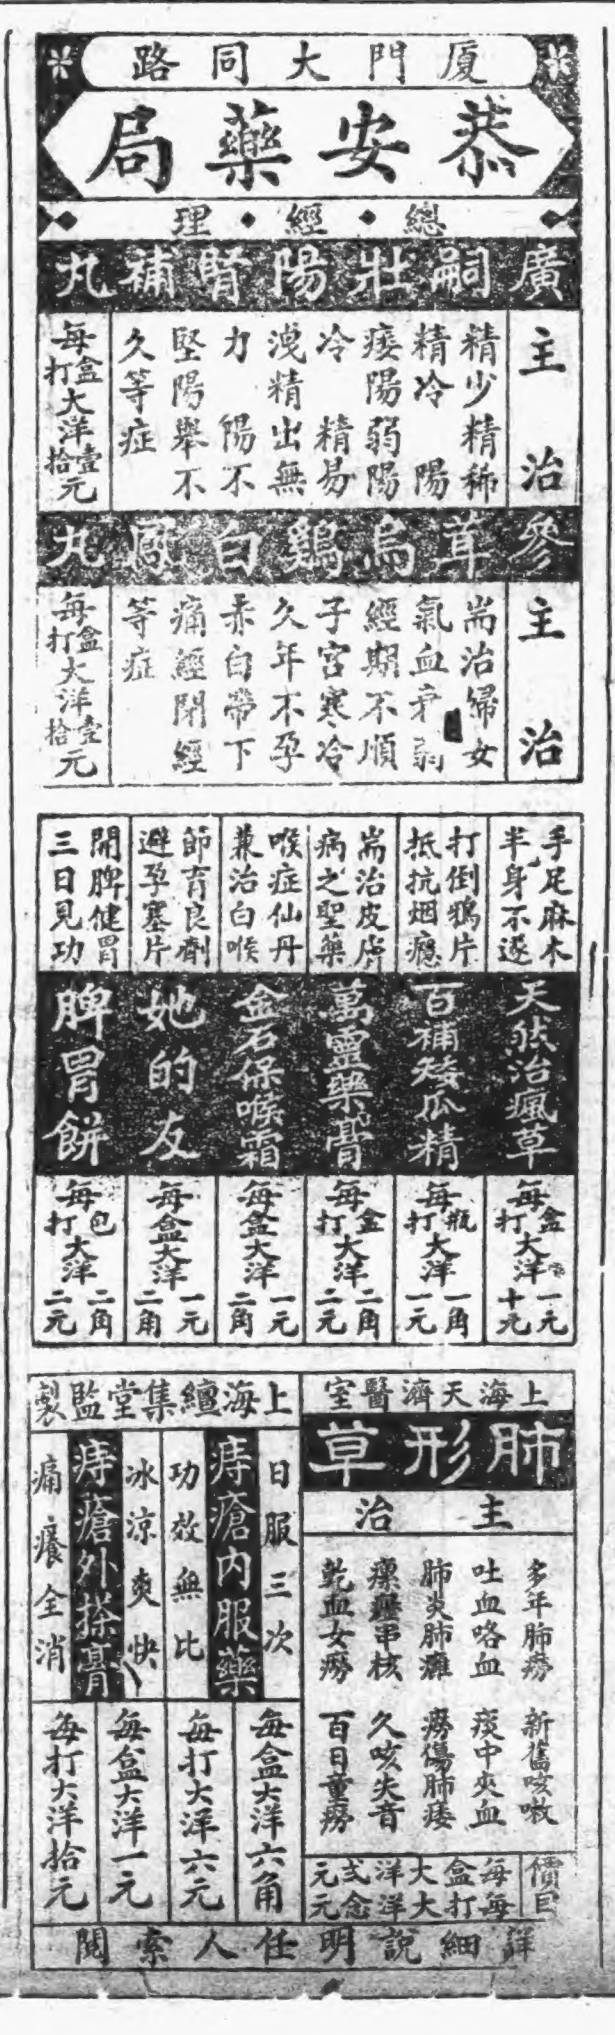 厦門大同路
恭安藥局
總•經•理
廣嗣壯陽腎補丸
主治
精少精稀
精冷 陽
痿陽弱陽
冷 精易
洩精出無
力 陽不
堅陽舉不
久等症
每盒打大洋壹拾元
參茸烏鷄白鳳丸
主治
耑治婦女
氣血矛弱
經期不順
子宮寒冷
久年不孕
赤白帶下
痛經閉經
等症
每盒打大洋壹拾元
手足麻木
半身不遂
天然治瘋草
每盒打大洋一元十元
打倒鴉片
抵抗烟癮
百補矮瓜精
每瓶打大洋一角一元
耑治皮膚
病之聖藥
萬靈藥膏
每盒打大洋二角二元
喉症仙丹
兼治白喉
金石保喉霜
每盒大洋一元二角
節育良劑
避孕塞片
她的友
每盒大洋一元二角
開脾健胃
三日見功
脾胃餅
每包打大洋二角二元
上海天濟醫室
肺形草
主治
多年肺癆 新舊咳嗽
吐血咯血 痰中夾血
肺炎肺癰 癆傷肺痿
瘰癧串核 久咳失音
乾血女癆 百日童癆
價目
每盒大洋弍元
每打大洋念元
上海纘集堂監製
日服三次
痔瘡內服藥
功效無比
每盒大洋六角
每打大洋六元
冰涼爽快
痔瘡外搽膏
痛癢全消
每盒大洋一元
每打大洋拾元
詳細說明任人索閱